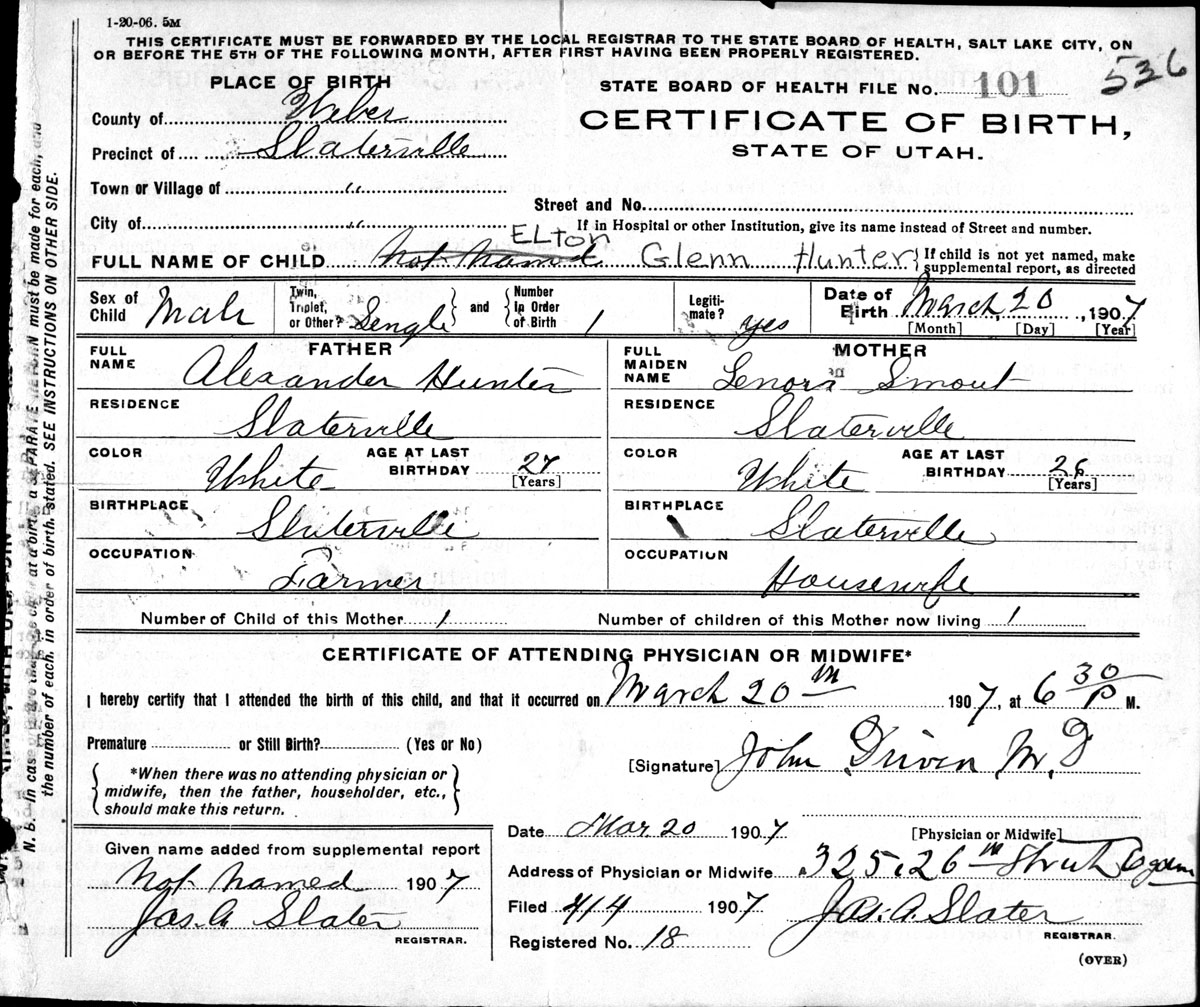 1-20-06. 5M
THIS CERTIFICATE MUST BE FORWARDED BY THE LOCAL REGISTRAR TO THE STATE BOARD OF HEALTH, SALT LAKE CITY, ON
OR BEFORE THE 5TH OF THE FOLLOWING MONTH, AFTER FIRST HAVING BEEN PROPERLY REGISTERED.
536
PLACE OF BIRTH
STATE BOARD OF HEALTH FILE No. 101
County of Weber
CERTIFICATE OF BIRTH,
Precinct of Slaterville
STATE OF UTAH.
Town or Village of "
Street and No.
City of "
If in Hospital or other Institution, give its name instead of Street and number.
FULL NAME OF CHILD Not Named ELTON Glenn Hunter } If child is not yet named, make
supplemental report, as directed
Sex of Child Male
Twin, Triplet, or Other? Single } and { Number in Order of Birth 1
Legitimate? yes
Date of Birth March 20, 1907
[Month] [Day] [Year]
FATHER
FULL NAME Alexander Hunter
RESIDENCE Slaterville
COLOR White AGE AT LAST BIRTHDAY 27 [Years]
BIRTHPLACE Slaterville
OCCUPATION Farmer
MOTHER
FULL MAIDEN NAME Lenora Smout
RESIDENCE Slaterville
COLOR White AGE AT LAST BIRTHDAY 26 [Years]
BIRTHPLACE Slaterville
OCCUPATION Housewife
Number of Child of this Mother 1 Number of children of this Mother now living 1
CERTIFICATE OF ATTENDING PHYSICIAN OR MIDWIFE*
I hereby certify that I attended the birth of this child, and that it occurred on March 20th 1907, at 6 30 P M.
Premature or Still Birth? (Yes or No)
[Signature] John Driven M. D
{ *When there was no attending physician or
midwife, then the father, householder, etc.,
should make this return. }
Date Mar 20 1907
[Physician or Midwife]
Given name added from supplemental report
Address of Physician or Midwife 325. 26th Street Ogden
Not Named 1907
Filed 4/4 1907
Jas. A Slater
REGISTRAR.
Jas. A. Slater
REGISTRAR.
Registered No. 18
(OVER)
N. b. In case of more than one child at a birth, a SEPARATE RETURN must be made for each, and
the number of each, in order of birth, stated. SEE INSTRUCTIONS ON OTHER SIDE.